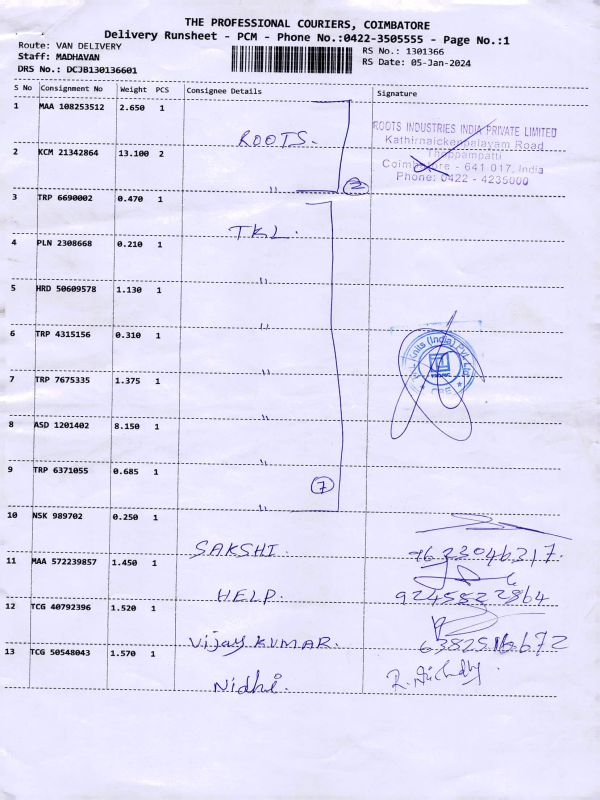 THE PROFESSIONAL COURIERS, COIMBATORE
Delivery Runsheet - PCM - Phone No.:0422-3505555 - Page No.:1
Route: VAN DELIVERY
RS No.: 1301366
Staff: MADHAVAN
RS Date: 05-Jan-2024
DRS No.: DCJB130136601
S No Consignment No Weight PCS Consignee Details Signature
1 MAA 108253512 2.650 1
ROOTS.
ROOTS INDUSTRIES INDIA PRIVATE LIMITED
Kathirnaickenpalayam Road
Thoppampatti
Coimbatore - 641 017, India
Phone: 0422 - 4235000
2 KCM 21342864 13.100 2
" 2
3 TRP 6690002 0.470 1
TKL.
4 PLN 2308668 0.210 1
"
5 HRD 50609578 1.130 1
"
6 TRP 4315156 0.310 1
"
Knits (India) Pvt. Ltd
7 TRP 7675335 1.375 1
"
8 ASD 1201402 8.150 1
"
9 TRP 6371055 0.685 1
" 7
10 NSK 989702 0.250 1
SAKSHI.
11 MAA 572239857 1.450 1
HELP.
12 TCG 40792396 1.520 1
Vijay KUMAR.
13 TCG 50548043 1.570 1
Nidhi.